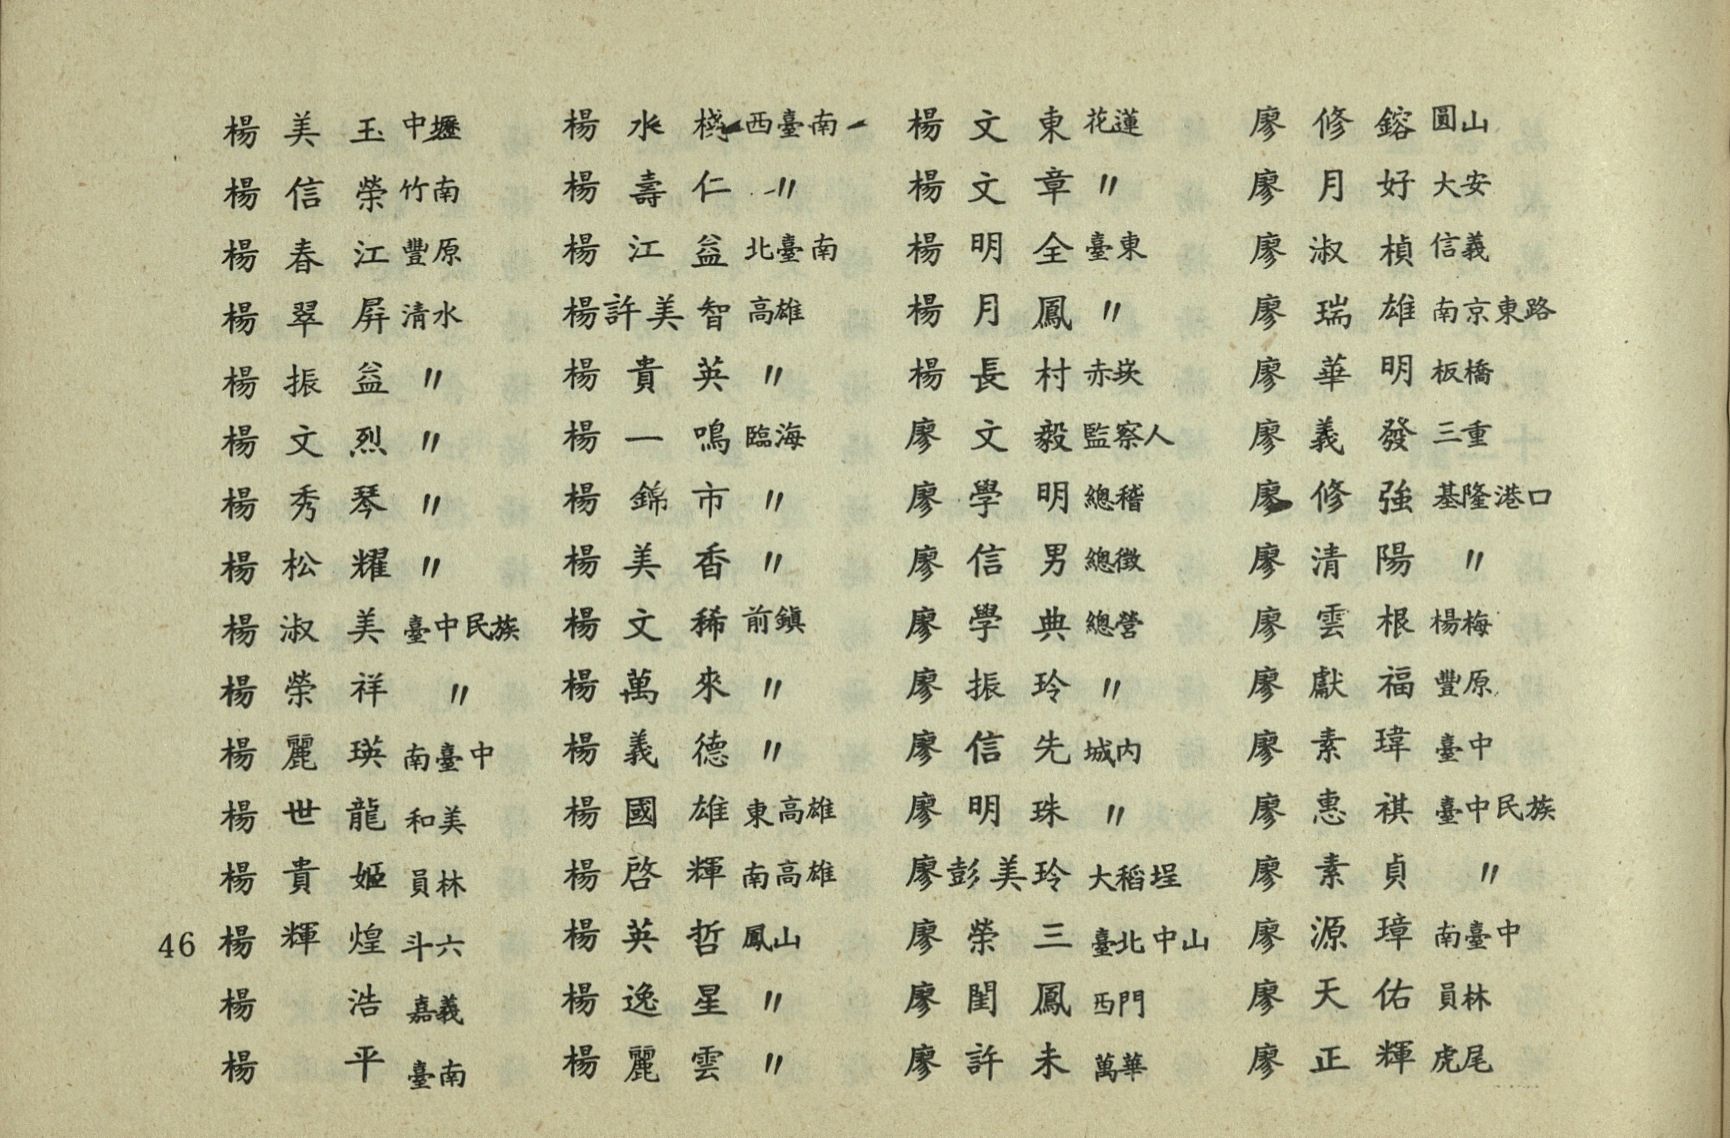 楊美玉 中壢
楊信榮 竹南
楊春江 豐原
楊翠屏 清水
楊振益 〃
楊文烈 〃
楊秀琴 〃
楊松耀 〃
楊淑美 臺中民族
楊榮祥 〃
楊麗瑛 南臺中
楊世龍 和美
楊貴姬 員林
楊輝煌 斗六
楊浩 嘉義
楊平 臺南
楊水棧 西臺南
楊壽仁 〃
楊江益 北臺南
楊許美智 高雄
楊貴英 〃
楊一鳴 臨海
楊錦市 〃
楊美香 〃
楊文稀 前鎮
楊萬來 〃
楊義德 〃
楊國雄 東高雄
楊啓輝 南高雄
楊英哲 鳳山
楊逸星 〃
楊麗雲 〃
楊文東 花蓮
楊文章 〃
楊明全 臺東
楊月鳳 〃
楊長村 赤崁
廖文毅 監察人
廖學明 總稽
廖信男 總徵
廖學典 總營
廖振玲 〃
廖信先 城內
廖明珠 〃
廖彭美玲 大稻埕
廖榮三 臺北中山
廖閨鳳 西門
廖許未 萬華
廖修鎔 圓山
廖月好 大安
廖淑楨 信義
廖瑞雄 南京東路
廖華明 板橋
廖義發 三重
廖修強 基隆港口
廖清陽 〃
廖雲根 楊梅
廖獻福 豐原
廖素瑋 臺中
廖惠祺 臺中民族
廖素貞 〃
廖源璋 南臺中
廖天佑 員林
廖正輝 虎尾
46